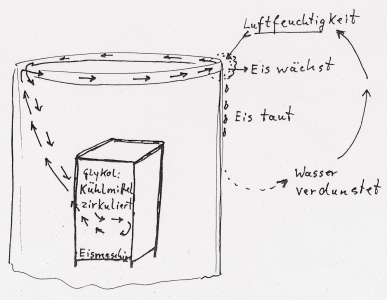 Luftfeuchtigkeit
Eis wächst
Eis taut
Wasser
verdunstet
Glykol:
Kühlmittel
zirkuliert
Eismaschine